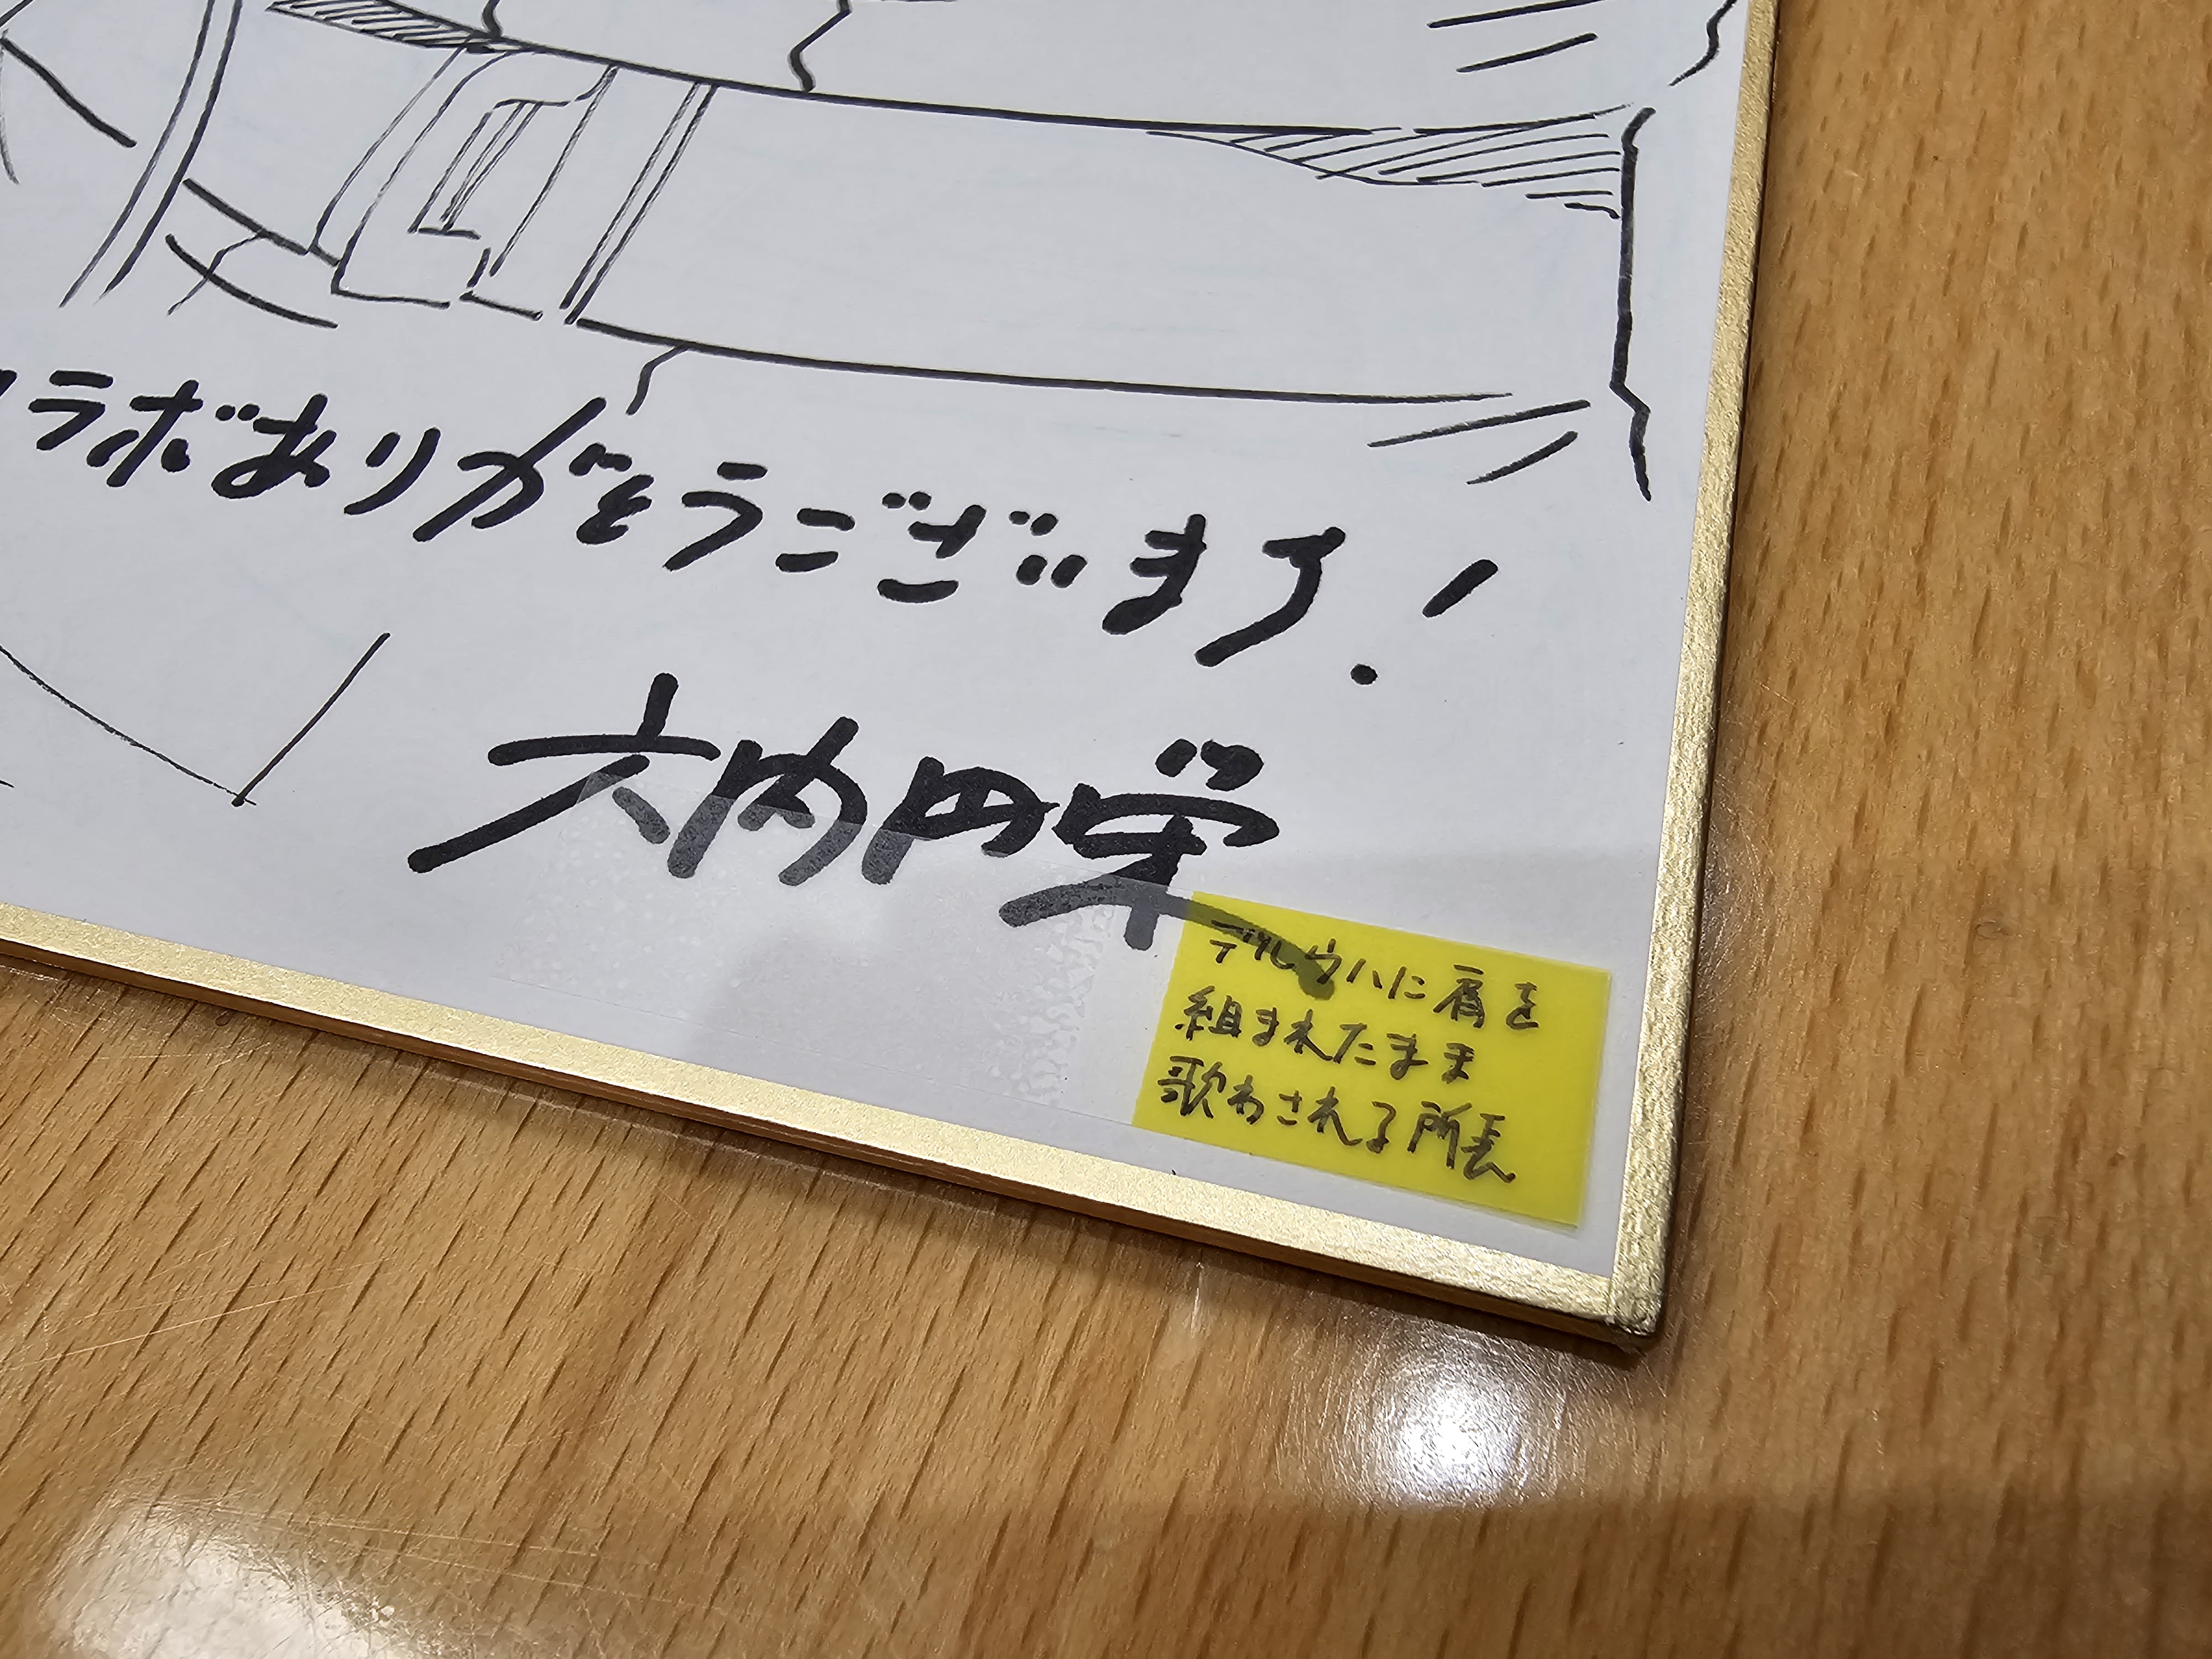 ラボありがとうございます!
六内円栄
デルウハに肩を
組まれたまま
歌わされる所長